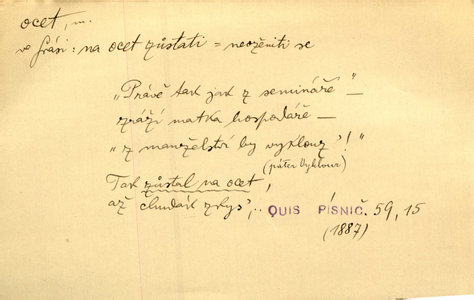 ocet, m.
ve frási: na ocet zůstati = neoženiti se
„Právě tak jak z semináře" –
zráží matka hospodáře –
„z manželství by vyklouz'!"
(páter Vyklouz)
Tak zůstal na ocet,
až chudák zlys',..
QUIS PÍSNIČ. 59, 15
(1887)